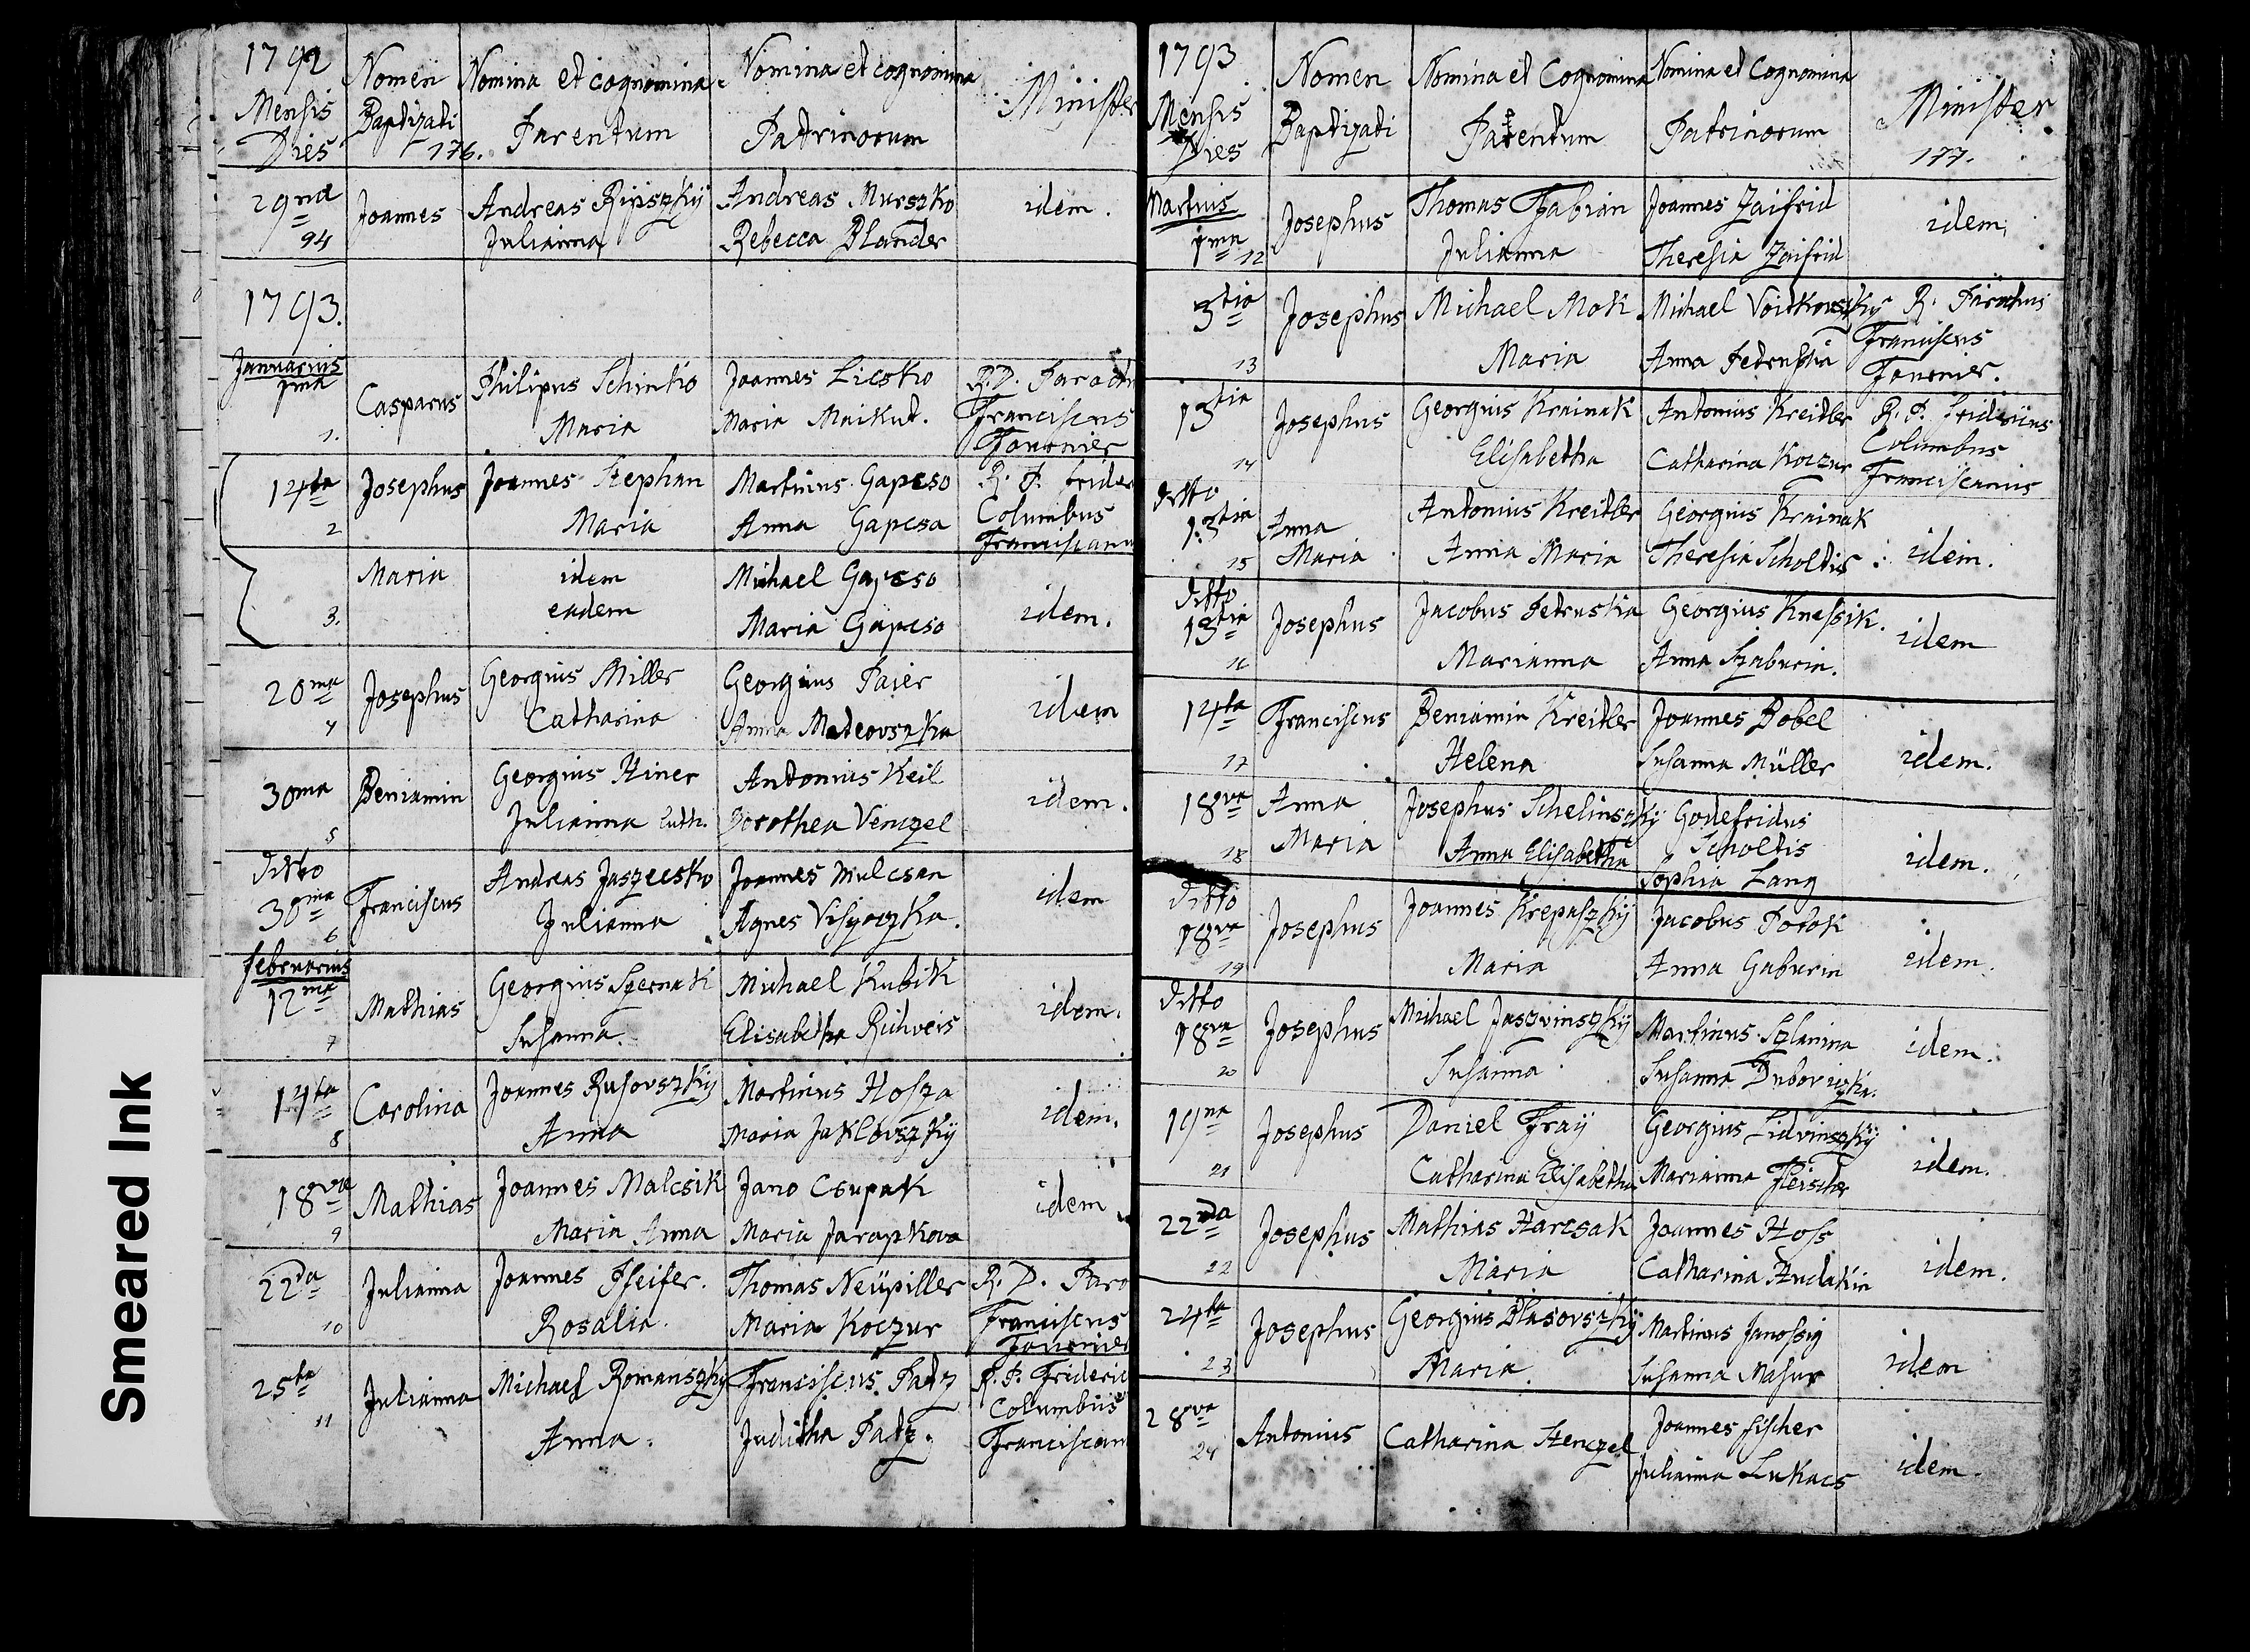 Smeared Ink
1792 Nomen Nomina et cognomina Nomina et cognomina Minister
Mensis Baptizati Parentum Patrinorum
Dies 176.
29na Joannes Andreas Rÿpszkÿ Andreas Murszko idem.
94 Julianna Rebecca Blander
1793.
Januarius
1ma Casparus Philipus Schinko Joannes Licsko R. D.
1. Maria Maria Maikut. Franciscus
Fournier
14ta Josephus Joannes Stephan Martinus Gapcso R. P.
2 Maria Anna Gapcsa Columbus
Maria idem Michael Gapcso
3. eadem Maria Gapcso idem.
20ma Josephus Georgius Miller Georgius Paier idem
4 Catharina Anna Mateovszka
30ma Beniamin Georgius Hiner Antonius Keil idem.
5 Julianna Luth. Dorothea Venczel
Ditto
30ma Franciscus Andreas Jaszecsko Joannes Mulcsan idem
6 Julianna Agnes
Februarius
12ma Mathias Georgius Szernak Michael Kubik idem.
7 Susanna. Elisabetha Richveis
14ta Carolina Joannes Rusovszkÿ Martinus Hosza idem.
8 Anna Maria Jaklovszkÿ
18va Mathias Joannes Malcsik Jano Csupak idem
9 Maria Anna Maria Jarapkova
22da Julianna Joannes Pfeifer. Thomas Neüpiller R. D.
10 Rosalia. Maria Koczur Franciscus
Fournier
25ta Julianna Michael Romanszky Franciscus Patz R. P.
11 Anna. Juditha Patz. Columbus
1793 Nomen Nomina et Cognomina Nomina et Cognomina Minister
Mensis Baptizati Parentum Patrinorum 177.
Dies
Martius
1ma Josephus Thomas Fabian Joannes Zaifrid idem.
12 Julianna Theresia Zaifrid
3tia Josephus Michael Mok Michael Voitkovszkÿ R. Parochus
13 Maria Anna Petruska Franciscus
Fournier.
13tia Josephus Georgius Krainak Antonius Kreitler R. P. Fridericus
14 Elisabetha Catharina Koczur Columbus
Franciscanus
Ditto
13tia Anna Antonius Kreitler Georgius Krainak
15 Maria Anna Maria Theresia Scholtis idem.
Ditto
13tia Josephus Jacobus Petruska Georgius Knessik. idem
16 Marianna Anna Szaburin.
14ta Franciscus Beniamin Kreitler Joannes Bobel
17 Helena Susanna Müller idem.
18va Anna Josephus Schelinszkÿ Godefridus
18 Maria Anna Elisabetha Scholtis idem.
Sophia Lang
Ditto
18va Josephus Joannes Krepaszkÿ Jacobus Potok
19 Maria Anna Gaburin idem.
Ditto
18va Josephus Michael Jaszvinszkÿ Martinus Szlanina idem.
20 Susanna Susanna Duboviczka.
19na Josephus Daniel Fraÿ Georgius Lidvinszkÿ
21 Catharina Elisabetha Marianna Fleischer idem.
22da Josephus Mathias Harcsak Joannes Hoss
22 Maria Catharina Hudakin idem.
24ta Josephus Georgius Blasovszkÿ Martinus Janossig
23 Maria. Susanna Masur idem
28va Antonius Catharina Henczel Joannes Fischer
24 Julianna Lukacs idem.